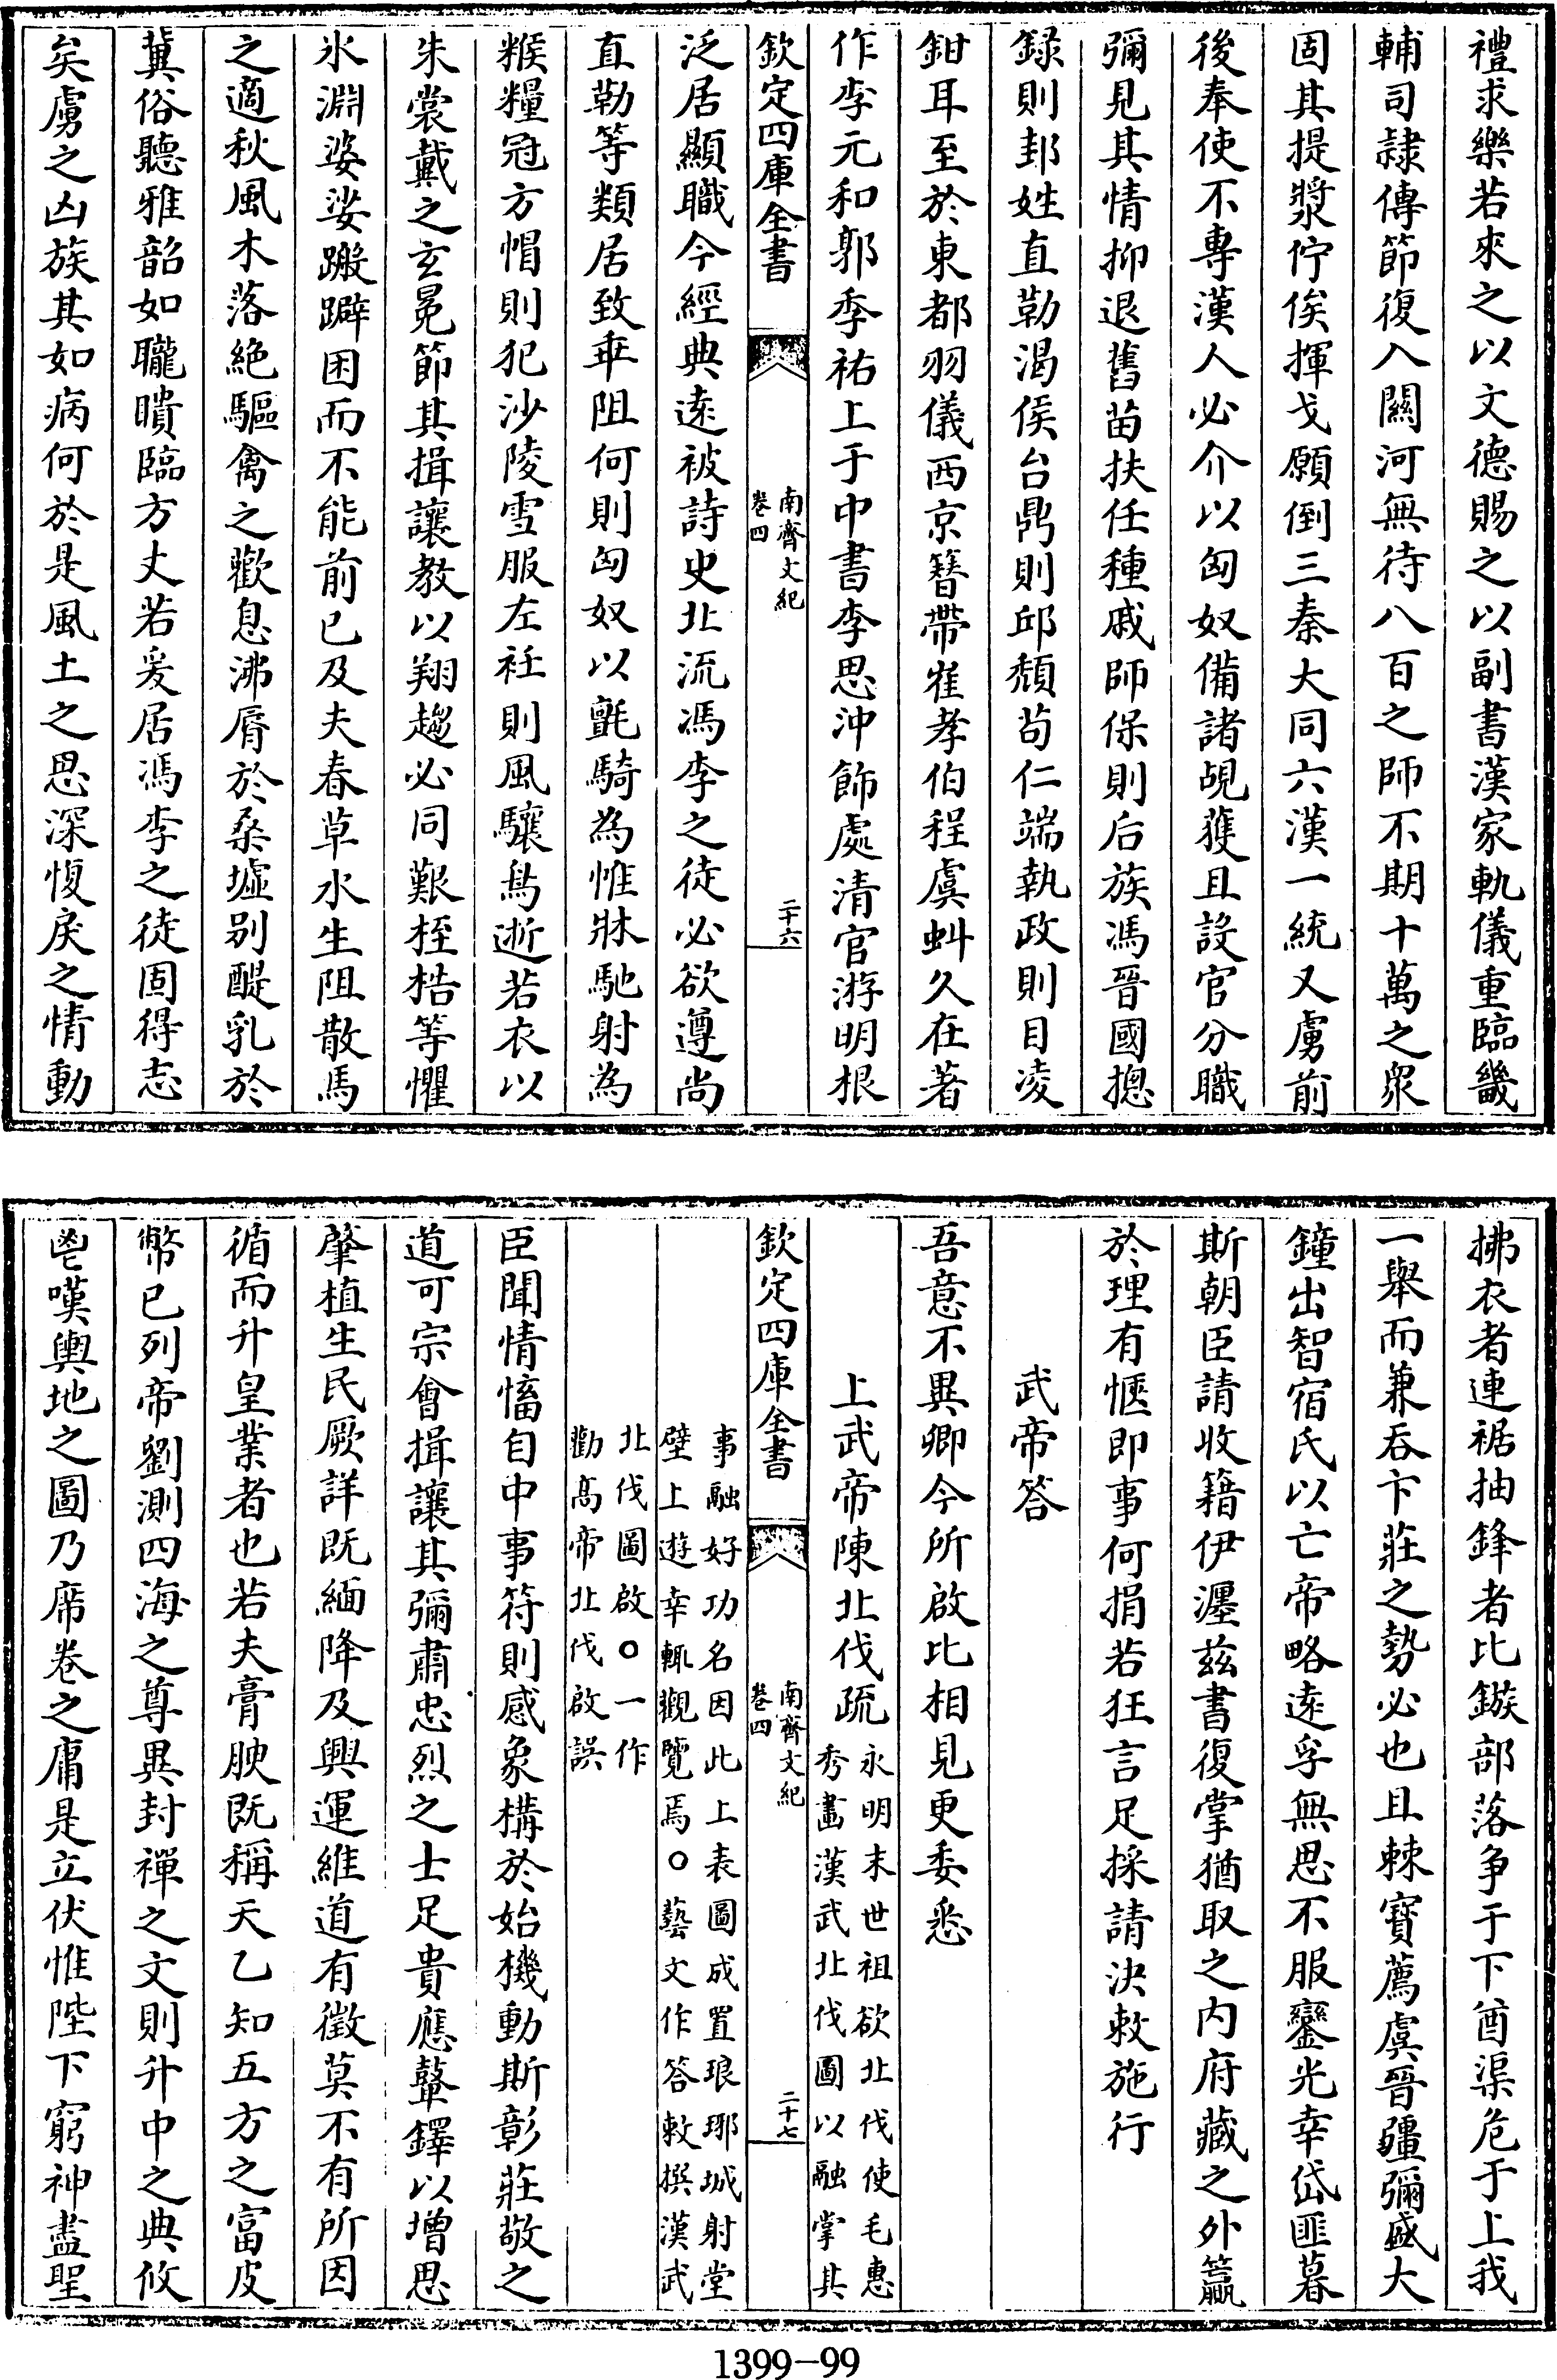 禮求樂若來之以文德賜之以副書漢家軌儀重臨畿
輔司隷傳節復入關河無待八百之師不期十萬之衆
固其提漿佇俟揮戈願倒三秦大同六漢一統又虜前
後奉使不專漢人必介以匈奴備諸覘獲且設官分職
彌見其情抑退舊苗扶任種戚師保則后族馮晉國摠
錄則邽姓直勒渴侯台鼎則邱頽苟仁端執政則目凌
鉗耳至於東都羽儀西京簪帶崔孝伯程虞虯久在著
作李元和郭季祐上于中書李思沖飾處清官游明根
欽定四庫全書
南齊文紀
卷四
二十六
泛居顯職今經典遠被詩史北流馮李之徒必欲遵尚
直勒等類居致乖阻何則匈奴以氈騎為惟牀馳射為
糇糧冠方帽則犯沙陵雪服左衽則風驤鳥逝若衣以
朱裳戴之玄冕節其揖讓教以翔趨必同艱桎梏等懼
氷淵婆娑蹣躃困而不能前已及夫春草水生阻散馬
之適秋風木落絶驅禽之歡息沸脣於桑墟别醍乳於
冀俗聽雅韶如聾瞶臨方丈若爰居馮李之徒固得志
矣虜之凶族其如病何於是風土之思深愎戾之情動
拂衣者連裾抽鋒者比鏃部落争于下酋渠危于上我
一舉而兼吞卞莊之勢必也且棘寳薦虞晉疆彌盛大
鐘出智宿氏以亡帝略遠孚無思不服鑾光幸岱匪暮
斯朝臣請收籍伊瀍茲書復掌猶取之内府藏之外籯
於理有愜即事何捐若狂言足採請決敕施行
武帝答
吾意不異卿今所啟比相見更委悉
上武帝陳北伐疏
永明末世祖欲北伐使毛惠
秀畫漢武北伐圖以融掌其
欽定四庫全書
南齊文紀
卷四
二十七
事融好功名因此上表圖成置琅琊城射堂
壁上遊幸輒觀覽焉○藝文作答敕撰漢武
北伐圖啟○一作
勸髙帝北伐啟誤
臣聞情慉自中事符則感象構於始機動斯彰莊敬之
道可宗會揖讓其彌肅忠烈之士足貴應鼙鐸以增思
肇植生民厥詳既緬降及興運維道有徵莫不有所因
循而升皇業者也若夫膏腴既稱天乙知五方之富皮
幣已列帝劉測四海之尊異封禪之文則升中之典攸
鬯嘆輿地之圖乃席卷之庸是立伏惟陛下窮神盡聖
1399-99